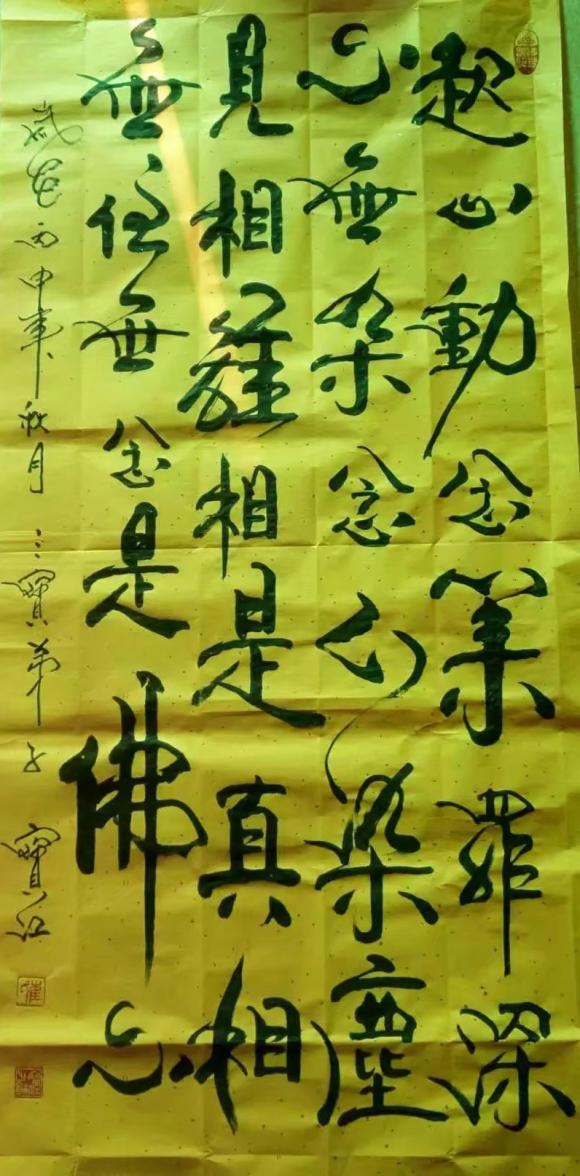 起心動念業罪深
心無染念心染塵
見相離相是真相
無住無念是佛心
歲在丙申年秋月 三寶弟子 寶江
崔